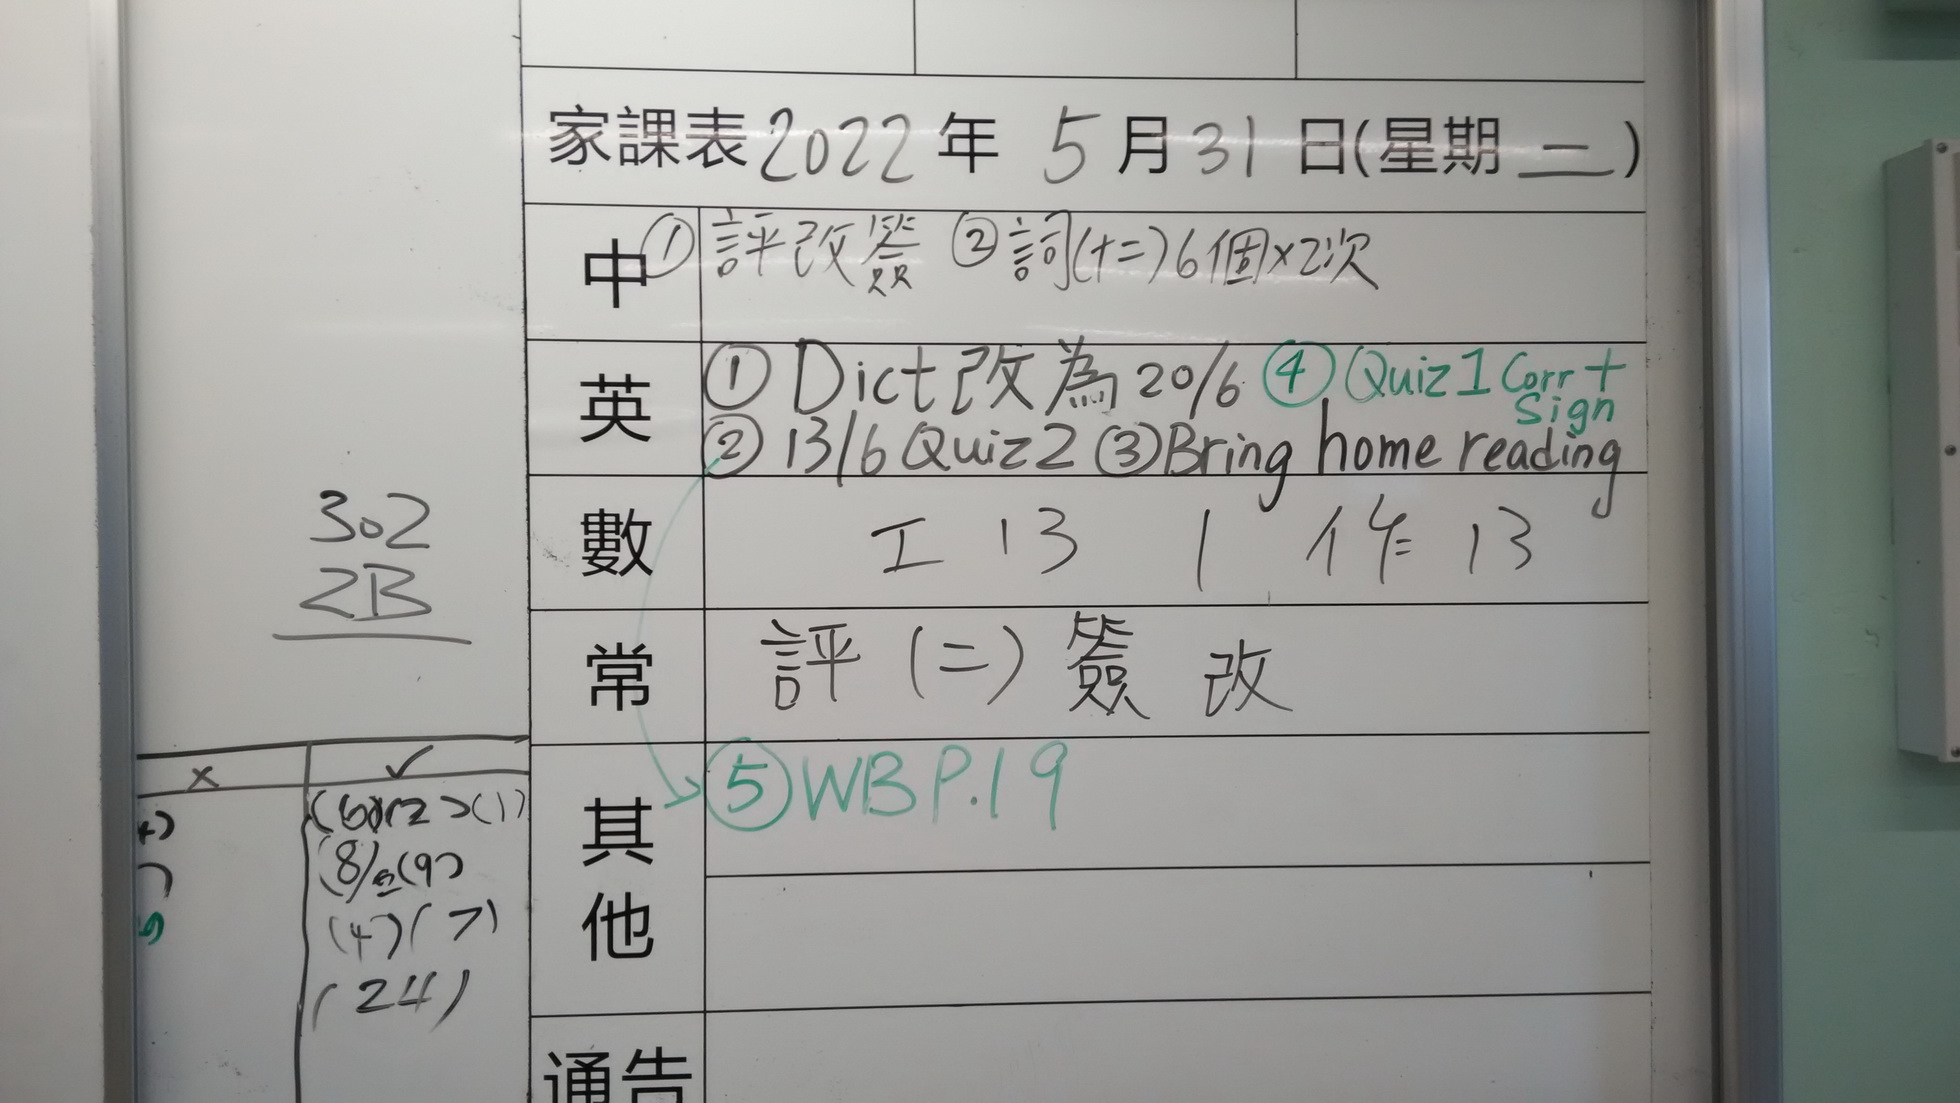 家課表2022年 5月31日(星期二)
中 ①評改簽 ②詞(十二)6個×2次
英 ①Dict改為20/6 ④Quiz1 Corr+
Sign
②13/6 Quiz2 ③Bring home reading
數 工 13 | 作 13
常 評(二)簽 改
其他 ⑤WB P.19
通告
302
2B
x ✓
(6)(12)(1)
(8)(9)
(4)(7)
(24)